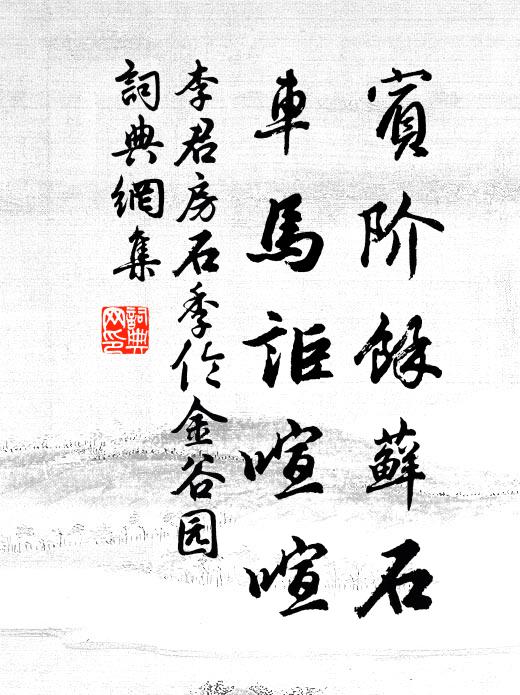 賓阶餘蘚石
車馬詎喧喧
李君房石季伦金谷园
詞典網集
詞典网印